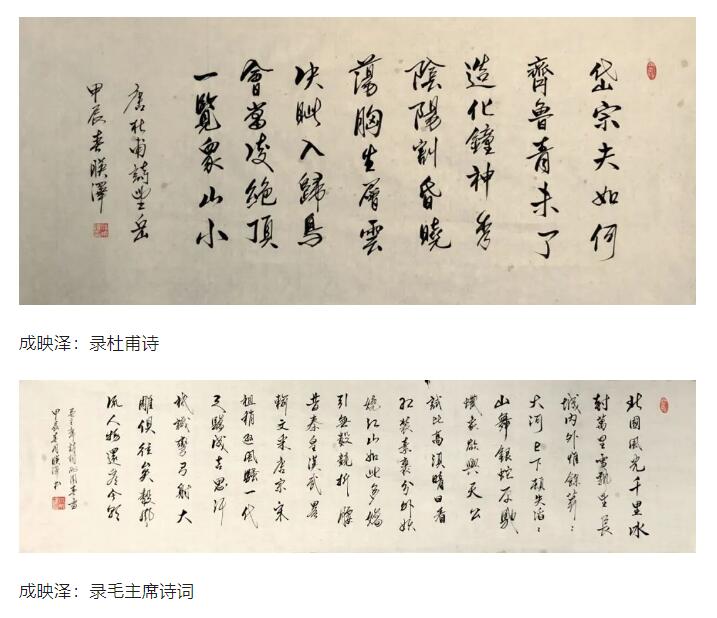 岱宗夫如何
齊魯青未了
造化鐘神秀
陰陽割昏曉
蕩胸生層雲
决眦入歸鳥
會當凌絕頂
一覽衆山小
唐杜甫詩望岳
甲辰春映澤
成映泽：录杜甫诗
北國風光千里冰
封萬里雪飄望長
城内外惟餘莽：
大河上下頓失滔：
山舞銀蛇原馳
蠟象欲與天公
試比高須晴日看
紅裝素裹分外妖
嬈江山如此多嬌
引無數競折腰
昔秦皇漢武畧
輸文采唐宗宋
祖稍遜風騷一代
天驕成吉思汗
祇識彎弓射大
雕俱往矣數風
流人物還看今朝
毛主席詩詞沁園春雪
甲辰春月映澤书
成映泽：录毛主席诗词